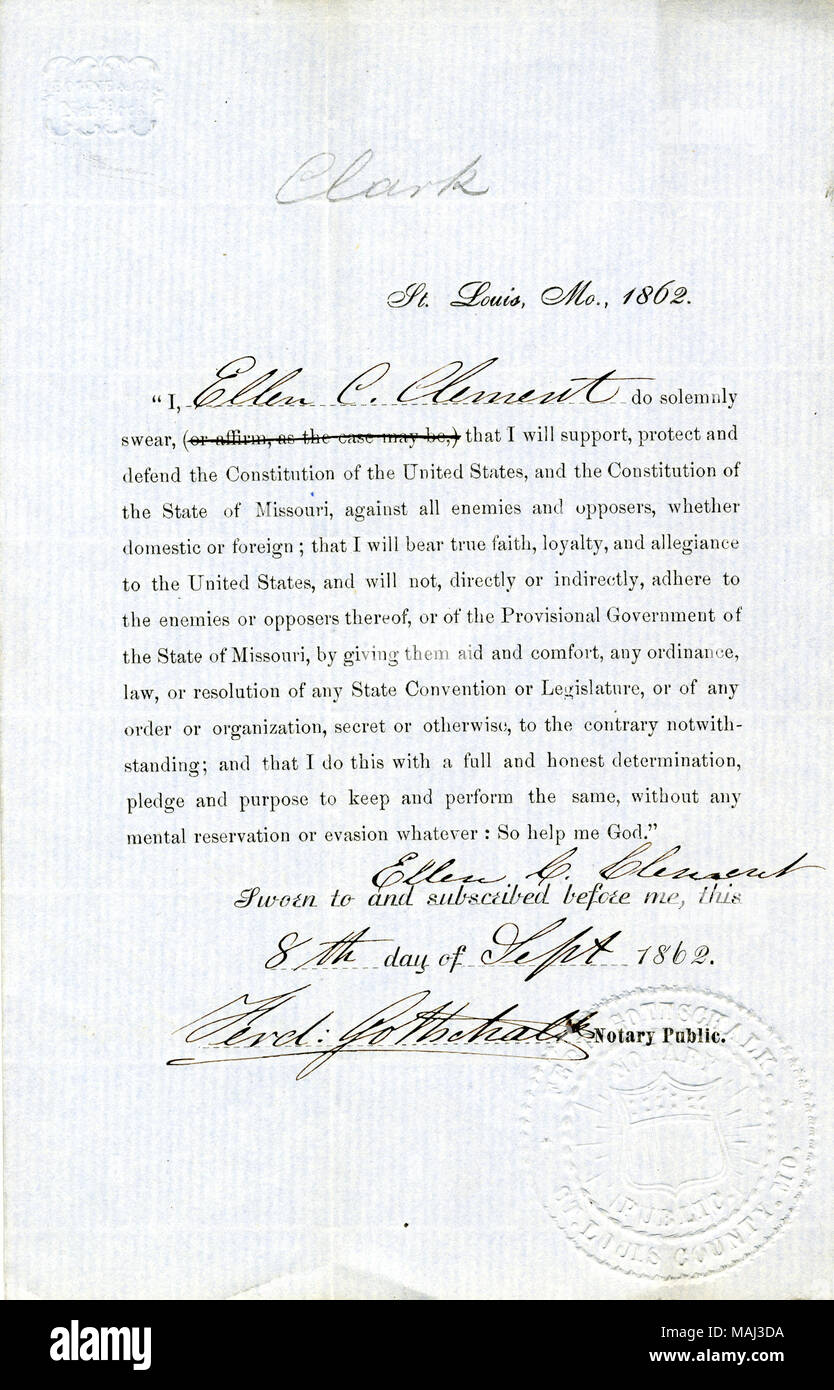 Clark
St. Louis, Mo., 1862.
“I, Ellen C. Clement do solemnly
swear, (or affirm, as the case may be,) that I will support, protect and
defend the Constitution of the United States, and the Constitution of
the State of Missouri, against all enemies and opposers, whether
domestic or foreign ; that I will bear true faith, loyalty, and allegiance
to the United States, and will not, directly or indirectly, adhere to
the enemies or opposers thereof, or of the Provisional Government of
the State of Missouri, by giving them aid and comfort, any ordinance,
law, or resolution of any State Convention or Legislature, or of any
order or organization, secret or otherwise, to the contrary notwith-
standing; and that I do this with a full and honest determination,
pledge and purpose to keep and perform the same, without any
mental reservation or evasion whatever : So help me God.”
Ellen C. Clement
Sworn to and subscribed before me, this
8th day of Sept 1862.
Ferd: Gottschalk Notary Public.
GOTTSCHALK.
NOTARY
PUBLIC
ST. LOUIS COUNTY, MO.
alamy
Image ID: MAJ3DA
www.alamy.com